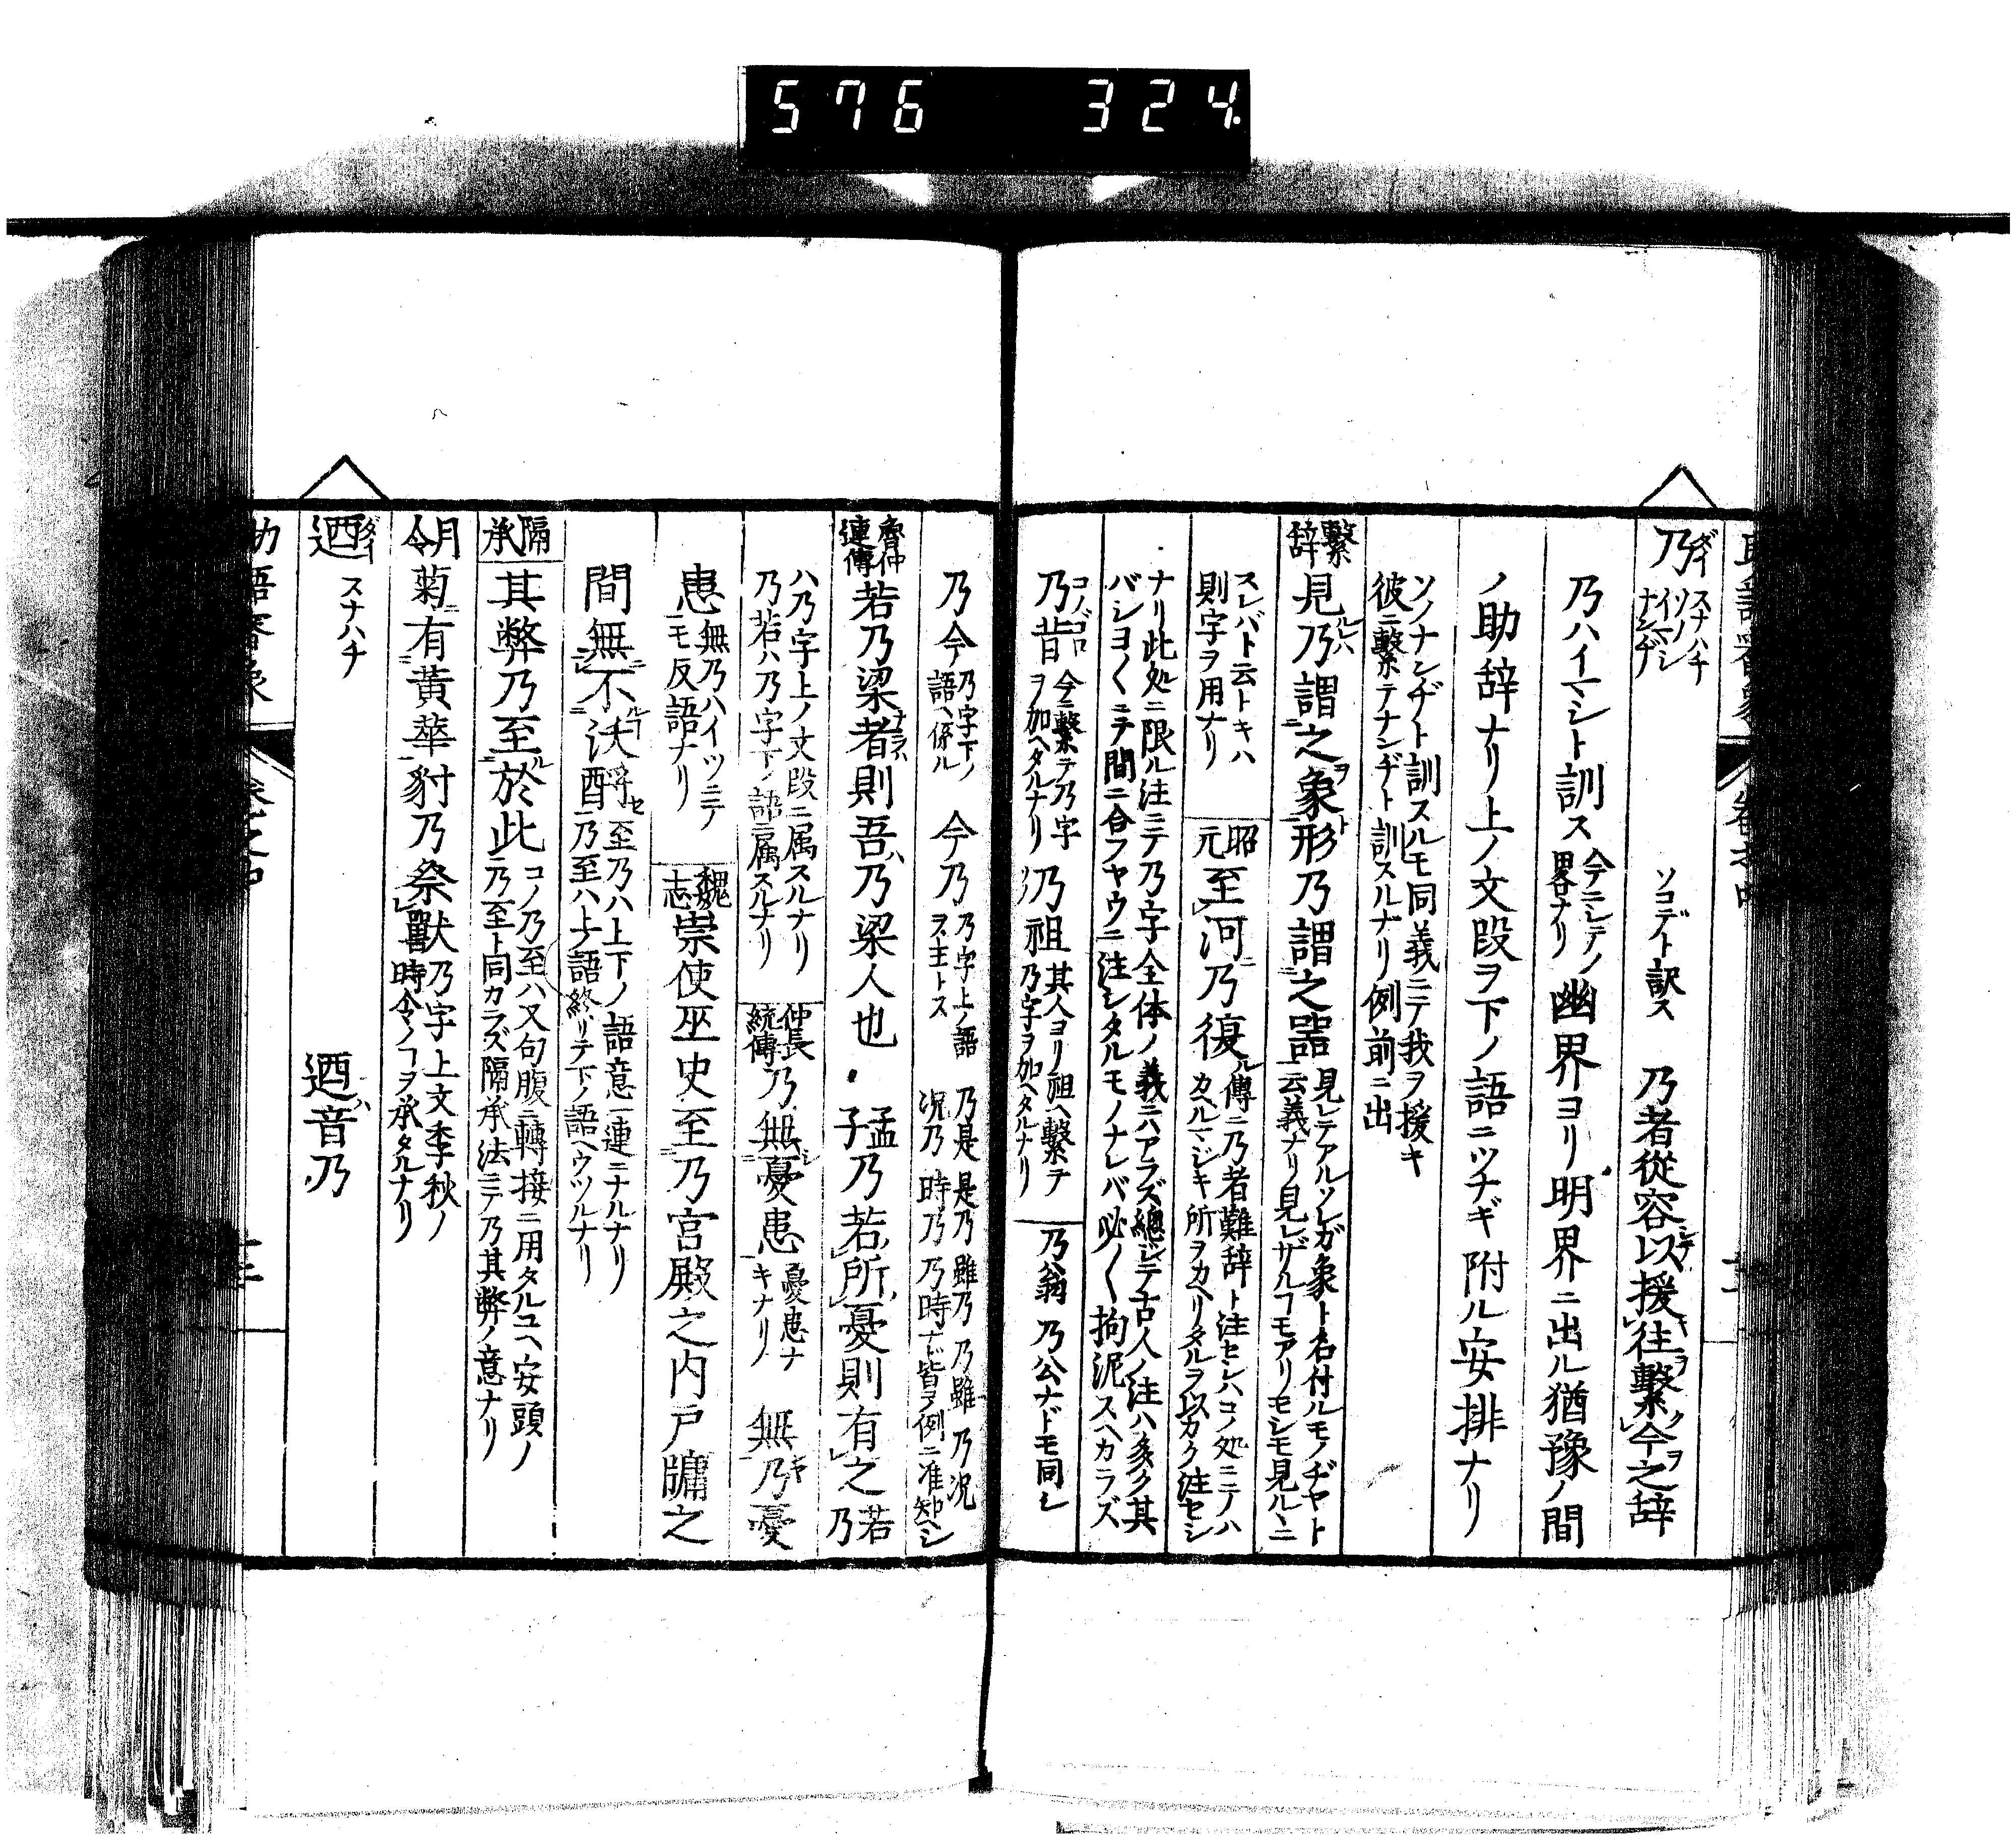 576 324.
乃 ダイ スナハチ ソノ イマシ ナンヂ ソコデト訳ス 乃者從容以援往繫今之辞
乃ハイマシト訓ス 今ニシテノ畧ナリ 幽界ヨリ明界ニ出ル猶豫ノ間
ノ助辞ナリ上ノ文段ヲ下ノ語ニツナギ附ル安排ナリ
ソノナンヂト訓スルモ同義ニテ我ヲ援キ
彼ニ繫テナンヂト訓スルナリ例前ニ出
繫辞 見乃謂之象形乃謂之器 見レテアルソレガ象ト名付ルモノヂヤト
云義ナリ見レザルコモアリモシモ見ルヽニ
スレバト云トキハ
則字ヲ用ナリ
昭元 至河乃復 傳ニ乃者難辞ト注セシハコノ処ニテハ
カヘルマジキ所ヲカヘリタルヲ以カク注セシ
ナリ此処ニ限ル注ニテ乃字全体ノ義ニハアラズ總ジテ古人ノ注ハ多ク其
バシヨ〱ニテ間ニ合フヤウニ注シタルモノナレバ必〱拘泥スヘカラズ
乃昔 コノゴロ 今ニ繫テ乃字
ヲ加ヘタルナリ
乃祖 其人ヨリ祖ヘ繫テ
乃字ヲ加ヘタルナリ
乃翁 乃公ナドモ同シ
乃今 乃字下ノ
語ヘ係ル
今乃 乃字上ノ語
ヲ主トス
乃是 是乃 雖乃 乃雖 乃况
况乃 時乃 乃時ナド皆ヲ例ニ准知ヘシ
魯仲連傳 若乃梁者則吾乃梁人也 孟子 乃若所憂則有之 若乃
ハ乃字上ノ文段ニ属スルナリ
乃若ハ乃字下ノ語ニ属スルナリ
仲長統傳 乃無憂患 憂患ナ
キナリ
無乃憂
患 無乃ハイツニテ
モ反語ナリ
魏志 崇使巫史至乃宮殿之内戸牖之
間無不沃酹 至乃ハ上下ノ語意一連ニナルナリ
乃至ハ上ノ語終リテ下ノ語ヘウツルナリ
隔承 其弊乃至於此 コノ乃至ハ又句腹ニ轉接ニ用タルユヘ安頭ノ
乃至ト同カラズ隔承法ニテ乃其弊ノ意ナリ
月令 菊有黃華豺乃祭獸 乃字上文季秋ノ
時令ノコヲ承タルナリ
迺 ダイ スナハチ 迺音乃